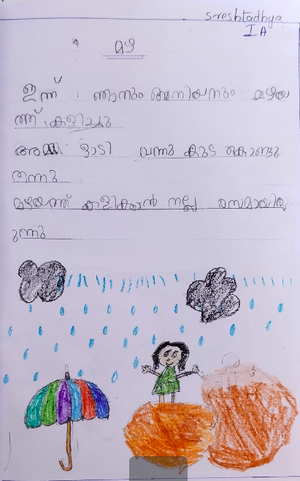 sreshtadhya
I A
മഴ
ഇന്ന് ഞാനും അനിയനും മഴയ
ത്ത് കളിച്ചു
അമ്മ ഓടി വന്നു കുട കൊണ്ടു
തന്നു
മഴയത്ത് കളിക്കാൻ നല്ല രസമായിരു
ുന്നു